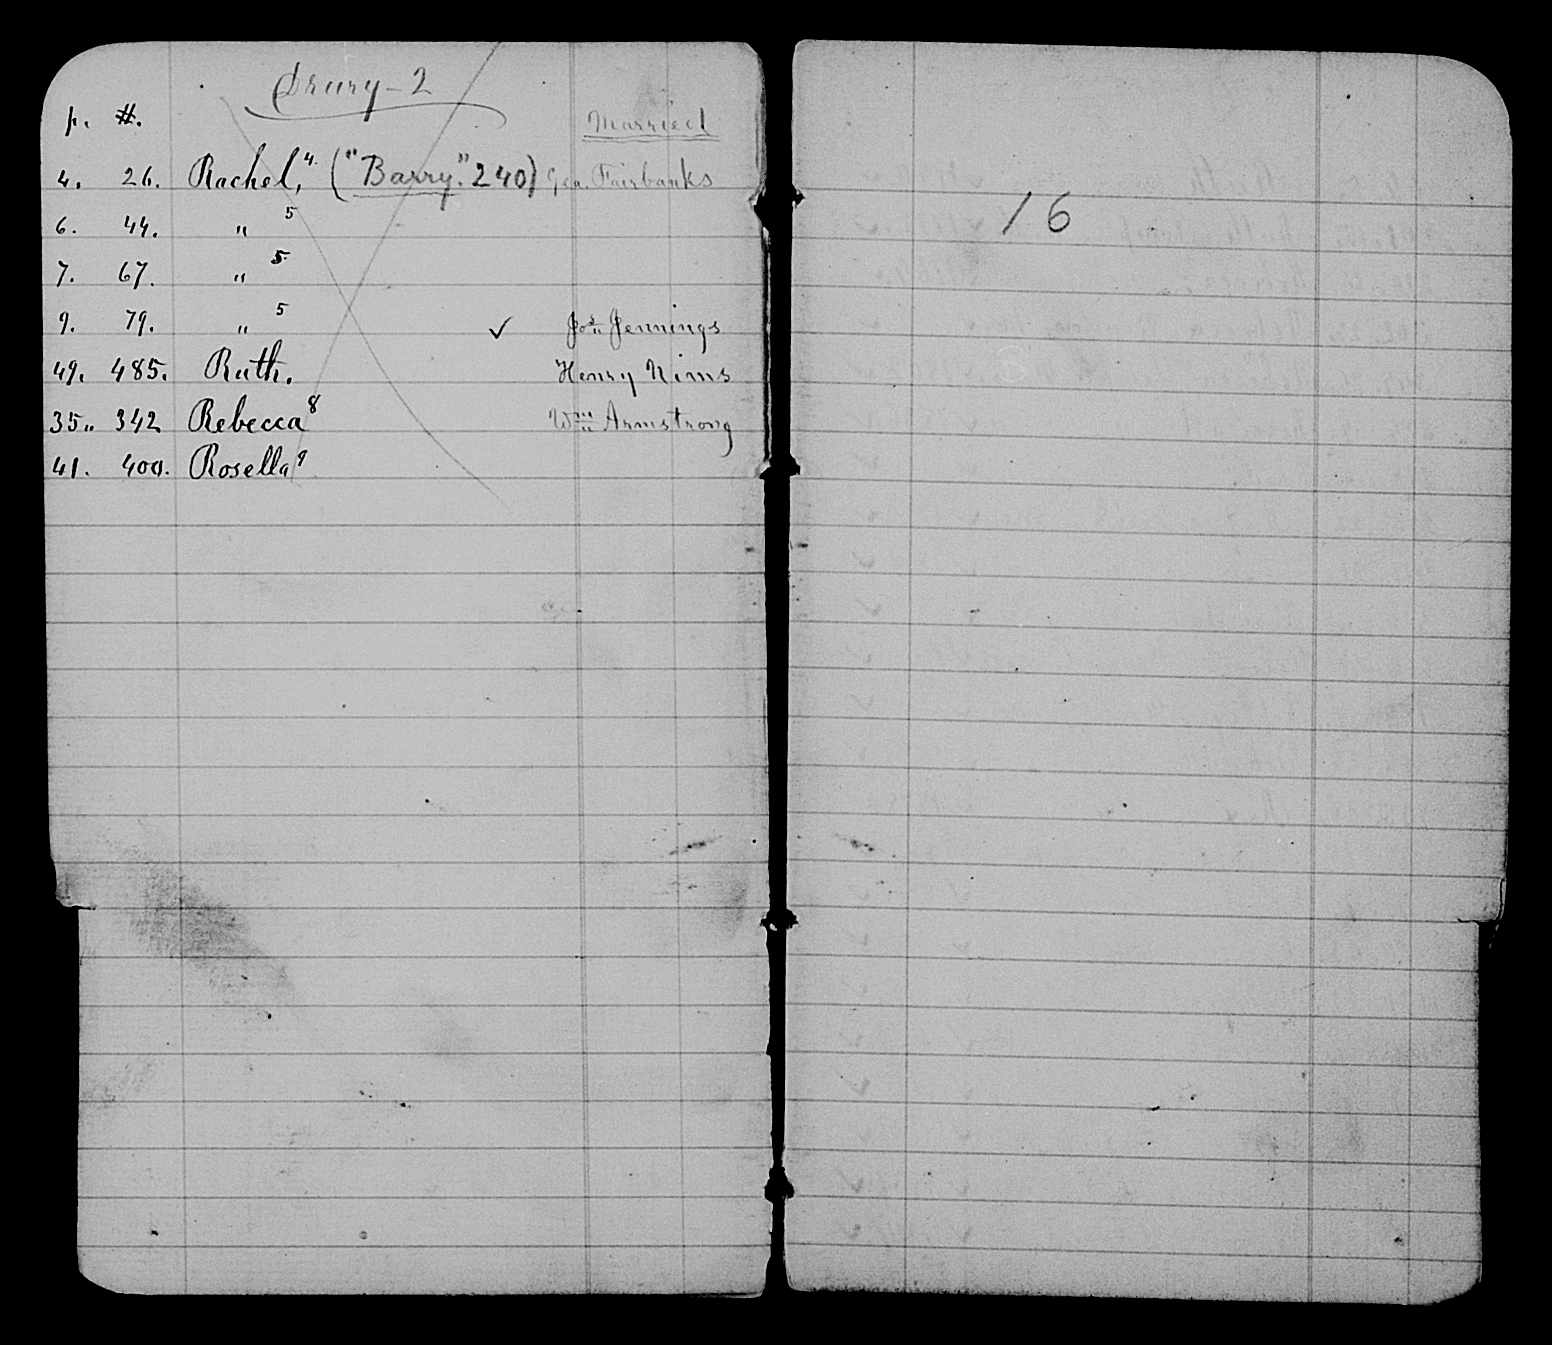 Drury - 2
p. #. Married
4. 26. Rachel,⁴· ("Barry." 240) Geo. Fairbanks
6. 44. " 5
7. 67. " 5
9. 79. " 5 ✓ Jos. Jennings
49. 485. Ruth. Henry Nims
35. 342 Rebecca⁸ Wm Armstrong
41. 400. Rosella⁹
16